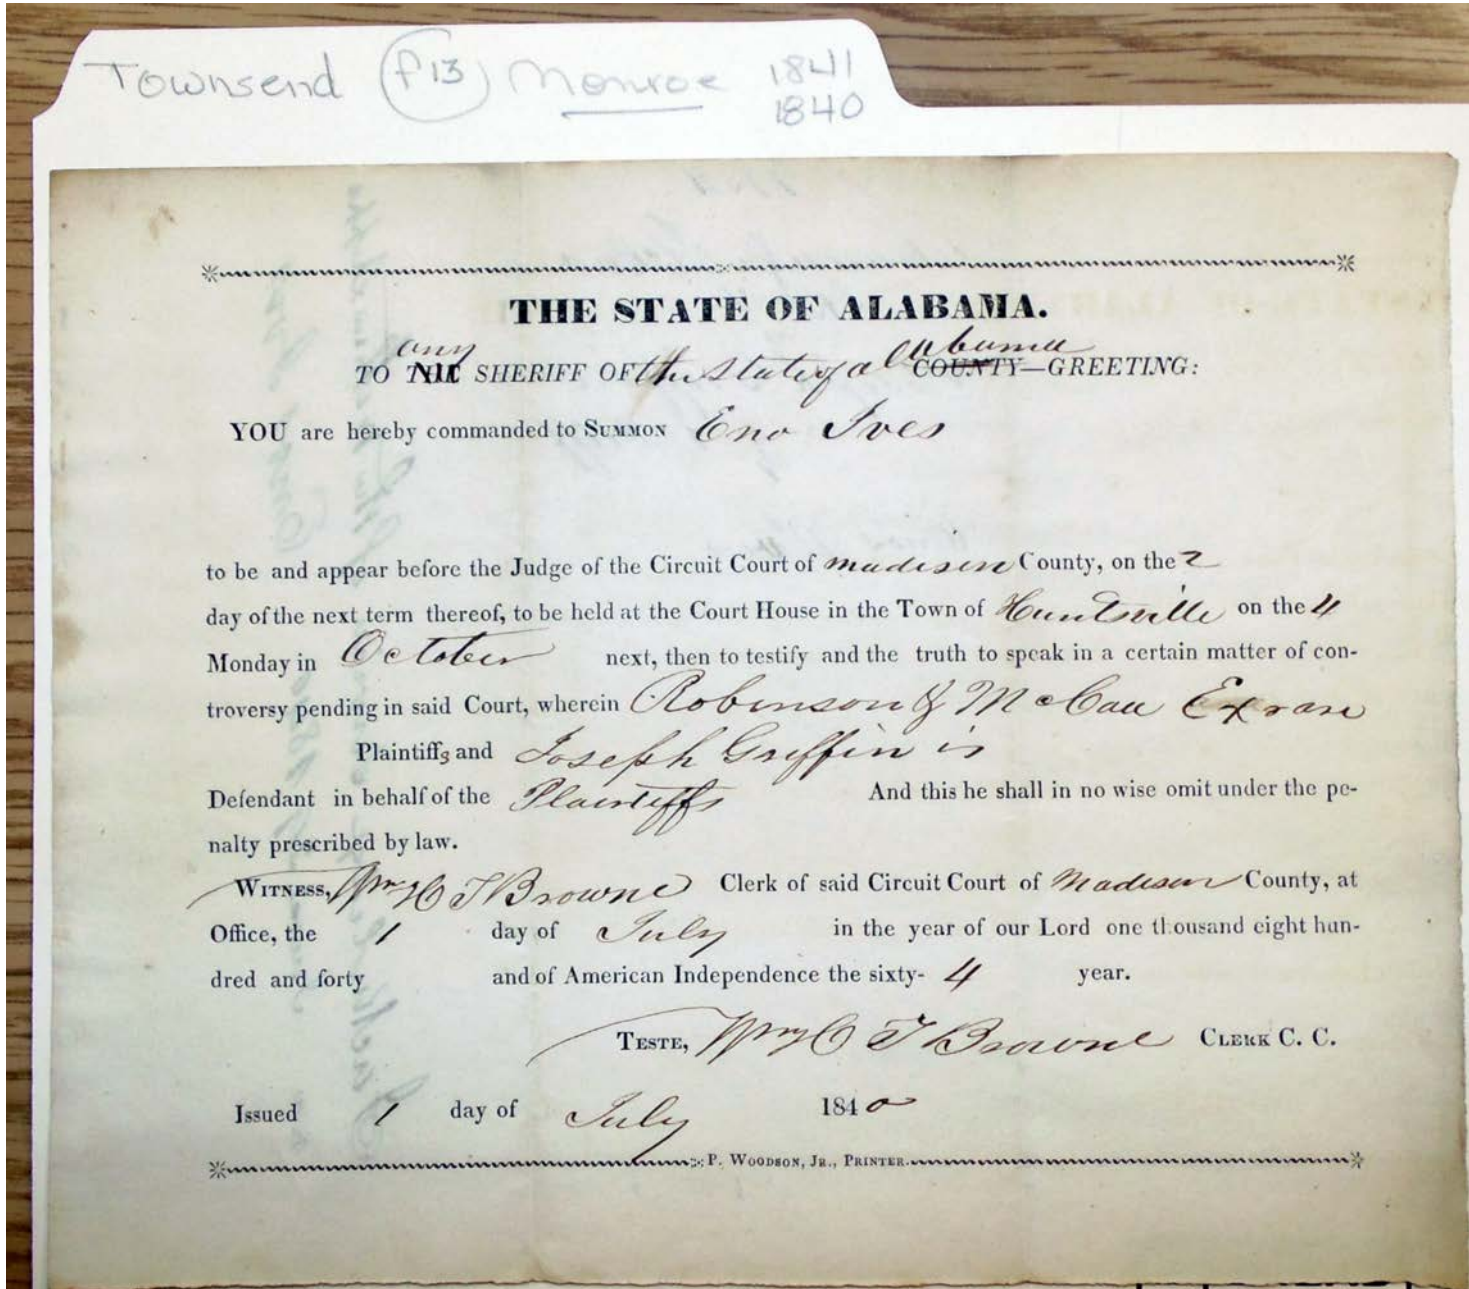 Townsend f13 Monroe 1841
1840
THE STATE OF ALABAMA.
any
TO THE SHERIFF OF the State of alabama COUNTY—GREETING:
YOU are hereby commanded to SUMMON Eno Ives
to be and appear before the Judge of the Circuit Court of madison County, on the 2
day of the next term thereof, to be held at the Court House in the Town of Huntsville on the 4
Monday in October next, then to testify and the truth to speak in a certain matter of con-
troversy pending in said Court, wherein Robinson & McCaa Exrs are
Plaintiffs and Joseph Griffin is
Defendant in behalf of the Plaintiffs And this he shall in no wise omit under the pe-
nalty prescribed by law.
WITNESS, Wm H T Browne Clerk of said Circuit Court of Madison County, at
Office, the 1 day of July in the year of our Lord one thousand eight hun-
dred and forty and of American Independence the sixty- 4 year.
TESTE, Wm H T Browne CLERK C. C.
Issued 1 day of July 1840
P. WOODSON, JR., PRINTER.